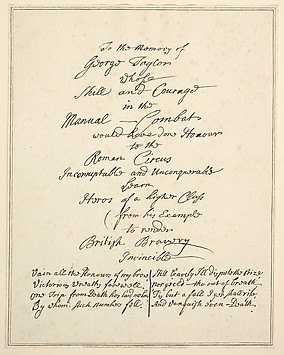 To the Memory of
George Taylor
whose
Skill and Courage
in the
Manual Combats
would have done Honours
to the
Roman Circus
Incorruptable and Unconquerable
Learn
Heros of a higher Class
(from his Example
to render
British Bravery
Invincible
Vain all the Honours of my brows
Victorious Wreaths farewell
One Trip from Death has laid me low
By whom such numbers fell.
Still bravely I'll dispute the Prize
Nor yield tho out of breath
Tis but a fall I yet shall rise
And Vanquish even-Death.